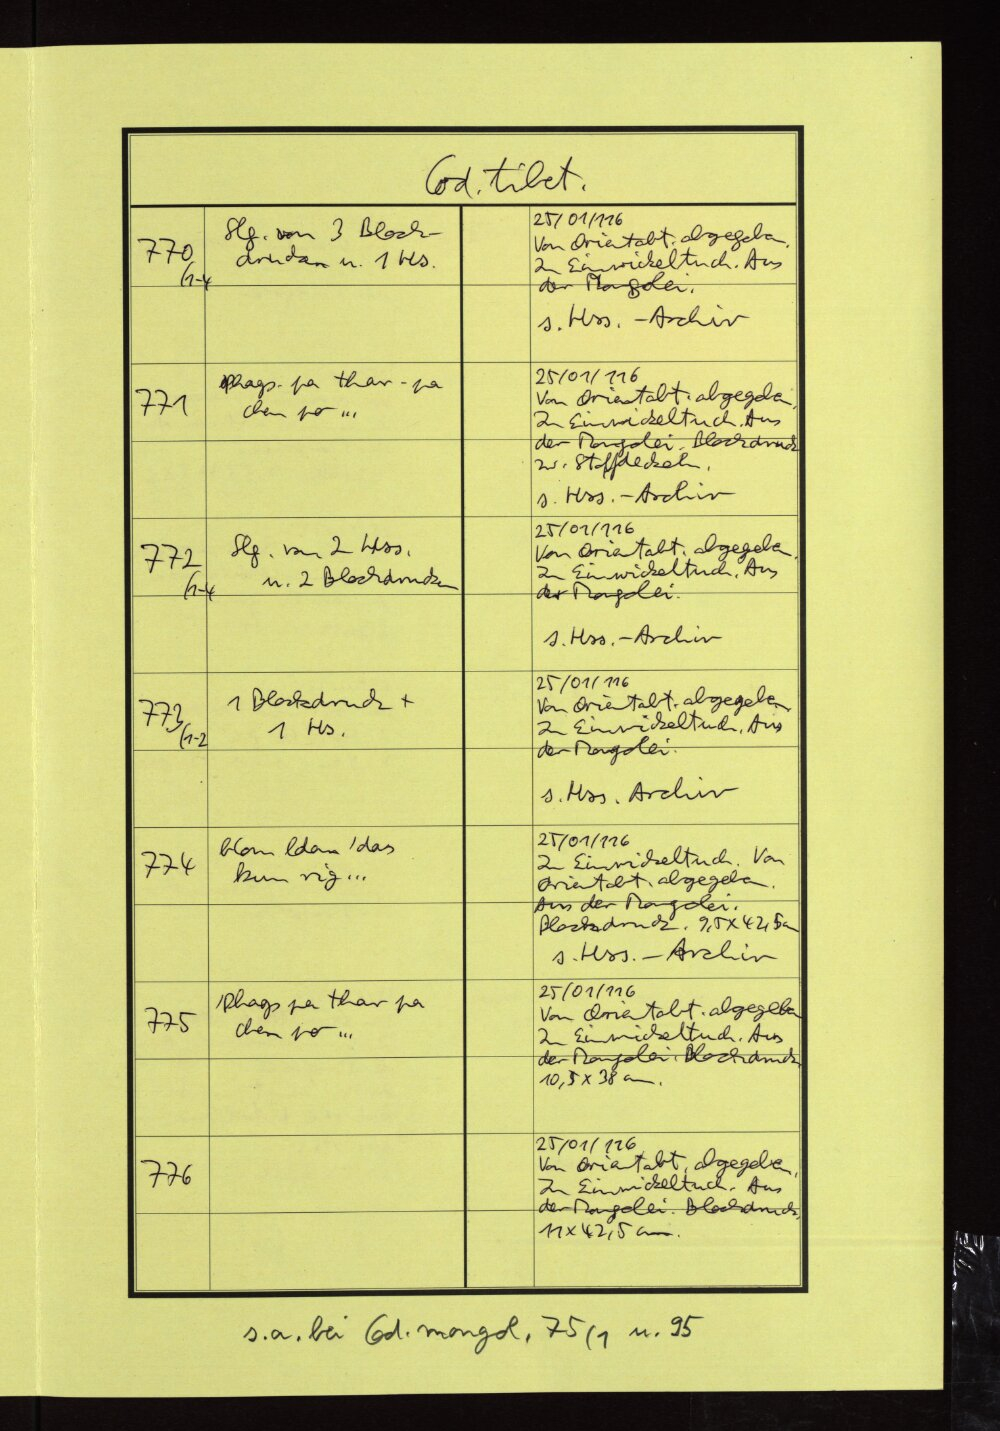 Cod. tibet.
770
(1-4
Slg. von 3 Block-
drucken u. 1 Hs.
25/01/116
Von Orientabt. abgegeben.
In Einwickeltuch. Aus
der Mongolei.
s. Hss. - Archiv
771
'Phags-pa thar-pa
chen po ...
25/01/116
Von Orientabt. abgegeben.
In Einwickeltuch. Aus
der Mongolei. Blockdruck
zw. Stoffdeckeln.
s. Hss. - Archiv
772
(1-4
Slg. von 2 Hss.
u. 2 Blockdrucken
25/01/116
Von Orientabt. abgegeben.
In Einwickeltuch. Aus
der Mongolei.
s. Hss. - Archiv
773
(1-2
1 Blockdruck +
1 Hs.
25/01/116
Von Orientabt. abgegeben.
In Einwickeltuch. Aus
der Mongolei.
s. Hss. Archiv
774
bCom ldan 'das
kun rig ...
25/01/116
In Einwickeltuch. Von
Orientabt. abgegeben.
Aus der Mongolei.
Blockdruck. 9,5 x 42,5 cm
s. Hss. - Archiv
775
'Phags pa thar pa
chen po ...
25/01/116
Von Orientabt. abgegeben
In Einwickeltuch. Aus
der Mongolei. Blockdruck
10,5 x 38 cm.
776
25/01/116
Von Orientabt. abgegeben.
In Einwickeltuch. Aus
der Mongolei. Blockdruck,
11 x 42,5 cm.
s.a. bei Cod. mongol. 75(1 u. 95